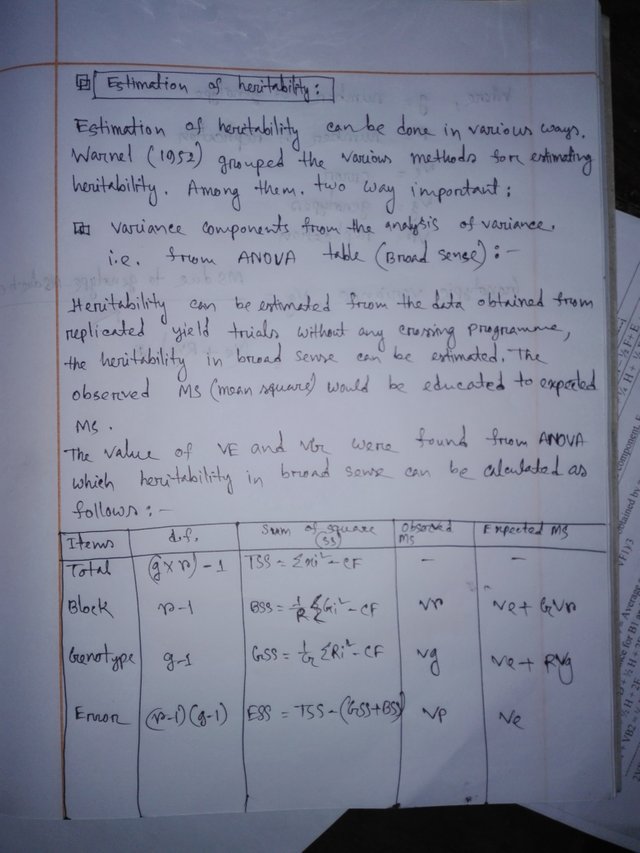 Estimation of heritability:
Estimation of heritability can be done in various ways.
Warnel (1952) grouped the various methods for estimating
heritability. Among them. two way important:
variance components from the analysis of variance.
i.e. from ANOVA table (Broad sense) :-
Heritability can be estimated from the data obtained from
replicated yield trials without any crossing programme,
the heritability in broad sense can be estimated. The
observed MS (mean square) would be educated to expected
MS.
The value of VE and VGr were found from ANOVA
which heritability in broad sense can be calculated as
follows :-
Items d.f. Sum of square (SS) Observed MS Expected MS
Total (g×r)-1 TSS = Σxi²-CF - -
Block r-1 BSS = 1/R ΣGi²-CF Vr Ve+GVr
Genotype g-1 GSS = 1/G ΣRi²-CF Vg Ve+RVg
Error (r-1)(g-1) ESS = TSS-(GSS+BSS) VP Ve